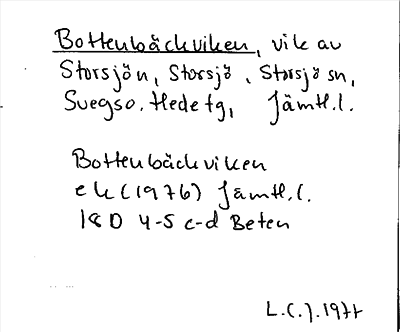 Bottenbäckviken, vik av
Storsjön, Storsjö, Storsjö sn,
Svegs o. Hede tg, Jämtl.l.
Bottenbäckviken
ek (1976) Jämtl.l.
18D 4-5 c-d Beten
L.C.J. 1977